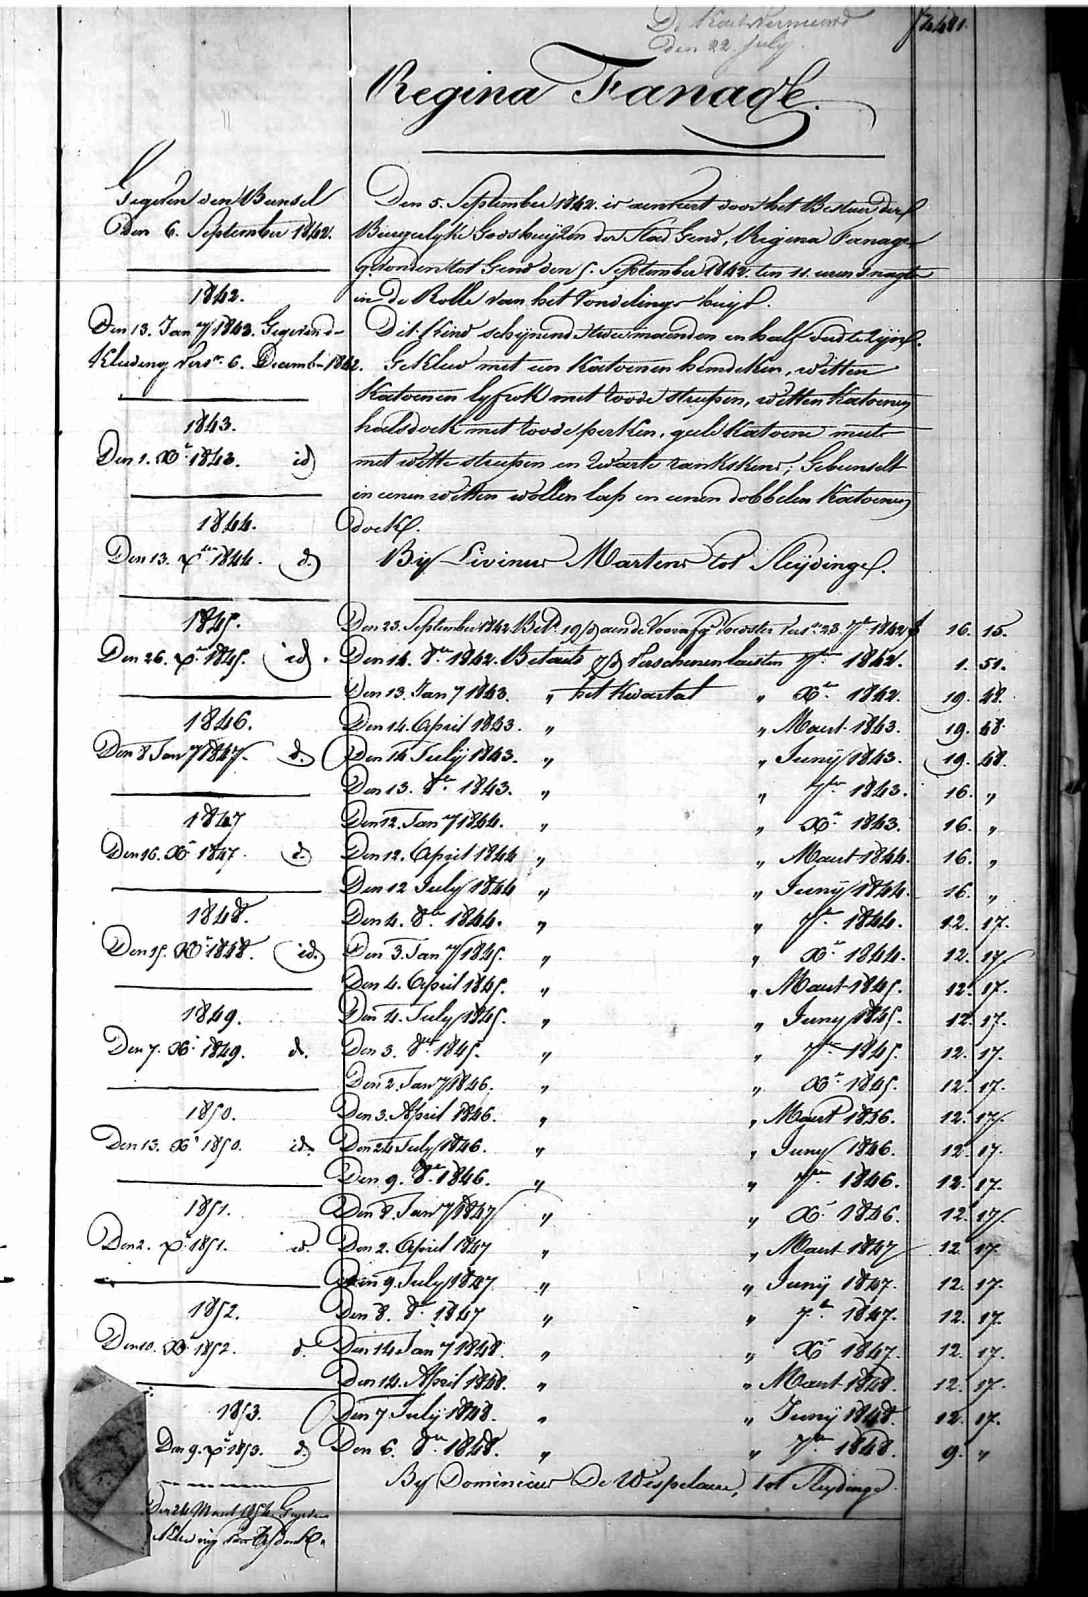 De Kaert vernieuwd
den 22. July.
f. 2481.
Regina Fanage.
Gegeven den Bunsel
den 6. September 1842.
1842.
Den 13. Jan.y 1843. Gegeven de
Kleeding vers.n 6. Decemb. 1842.
1843.
Den 1. Xr. 1843. id
1844.
Den 13. xber 1844. d.
1845.
Den 26. xr. 1845. id.
1846.
Den 8 Jan.y 1847. d.
1847
Den 16. Xr 1847. d.
1848.
Den 15. Xr 1848. id.
1849.
Den 7. Xr 1849. d.
1850.
Den 13. Xr 1850. id.
1851.
Den 2. xr 1851. id.
1852.
Den 10. Xr 1852. d.
1853.
Den 9. xr 1853. d.
Den 24 Maart 1854 Gegeven
Kleeding
Den 5. September 1842. is aenveert door het Bestuer der
Burgerlyke Godshuyzen der Stad Gend, Regina Fanage
gevonden tot Gend den 5. September 1842. ten 11. uren snagts
in de Rolle van het Vondelings huys.
Dit kind schynende twee maenden en half oud te zyn.
Gekleed met een katoenen hemdeken, witten
katoenen lyfrok met roode streepen, witten katoenen
halsdoek met roode perken, geele katoene muts
met witte streepen en zwarte rankskens; Gebunselt
in eenen witten wollen lap en eenen dobbelen katoenen
doek.
By Livinus Martens tot Sleydinge.
Den 23. September 1842 Bet.d aen de Voorster vers.n 23. 7r 1842 f 16. 15.
Den 14. 8er 1842. Betaelt 7r 1842. 1. 51.
Den 13. Jan.y 1843. " het Kwartael " Xr 1842. 19. 48.
Den 14. April 1843. " " Maert 1843. 19. 48.
Den 14 July 1843. " " Juny 1843. 19. 48.
Den 13. 8er 1843. " " 7er 1843. 16. "
Den 12. Jan.y 1844. " " Xr 1843. 16. "
Den 12. April 1844 " " Maert 1844. 16. "
Den 12 July 1844 " " Juny 1844. 16. "
Den 4. 8er 1844. " " 7r 1844. 12. 17.
Den 3. Jan.y 1845. " " Xr 1844. 12. 17.
Den 4. April 1845. " " Maert 1845. 12. 17.
Den 4. July 1845. " " Juny 1845. 12. 17.
Den 3. 8er 1845. " " 7er 1845. 12. 17.
Den 2. Jan.y 1846. " " Xr 1845. 12. 17.
Den 3. April 1846. " " Maert 1846. 12. 17.
Den 24 July 1846. " " Juny 1846. 12. 17.
Den 9. 8er 1846. " " 7er 1846. 12. 17.
Den 8. Jan.y 1847 " " Xr 1846. 12. 17.
Den 2. April 1847 " " Maert 1847 12. 17.
Den 9. July 1847. " " Juny 1847. 12. 17.
Den 8. 8r 1847 " " 7r 1847. 12. 17.
Den 14 Jan.y 1848. " " Xr 1847. 12. 17.
Den 14. April 1848. " " Maert 1848. 12. 17.
Den 7. July 1848. " " Juny 1848. 12. 17.
Den 6. 8er 1848. " " 7er 1848. 9. "
By Dominicus De Wispelaere, tot Sleydinge.